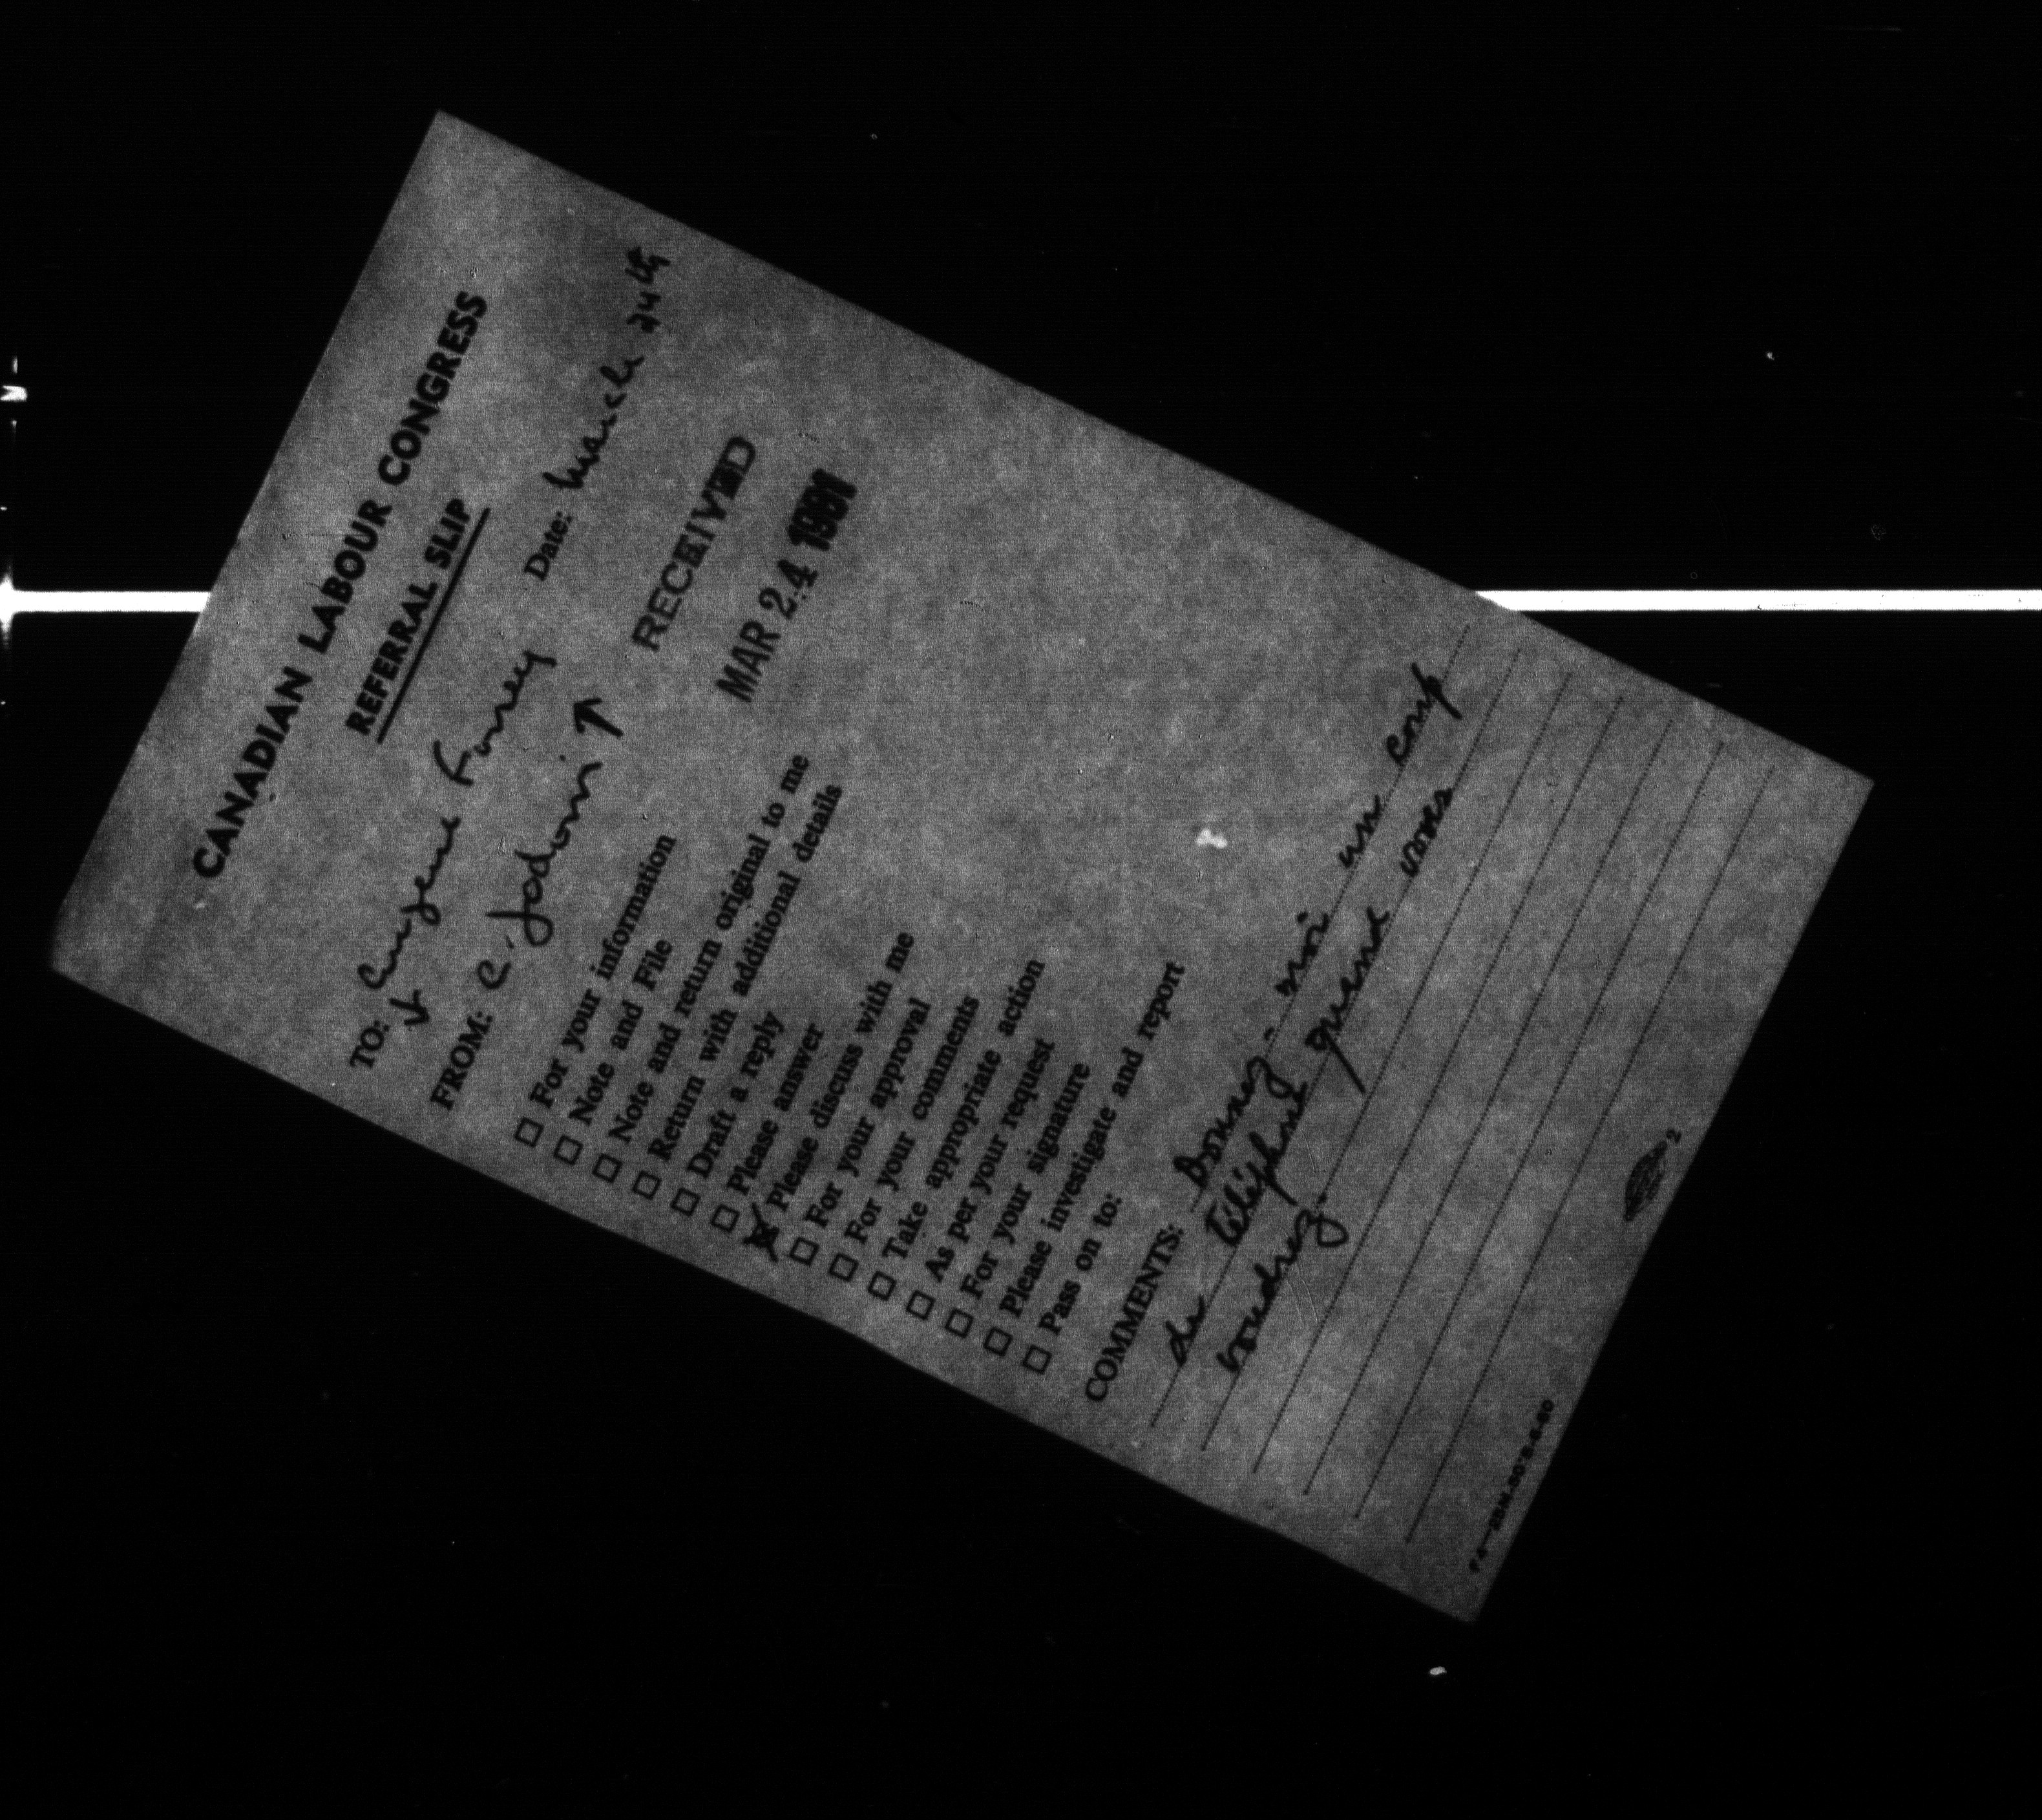 CANADIAN LABOUR CONGRESS
REFERRAL SLIP
TO: Eugene Forsey Date: March 24th
FROM: C. Jodoin
RECEIVED
MAR 24 1961
For your information
Note and File
Note and return original to me
Return with additional details
Draft a reply
Please answer
Please discuss with me
For your approval
For your comments
Take appropriate action
As per your request
For your signature
Please investigate and report
Pass on to:
COMMENTS: Donnez-moi un coup
de téléphone quand vous
voudrez.
2